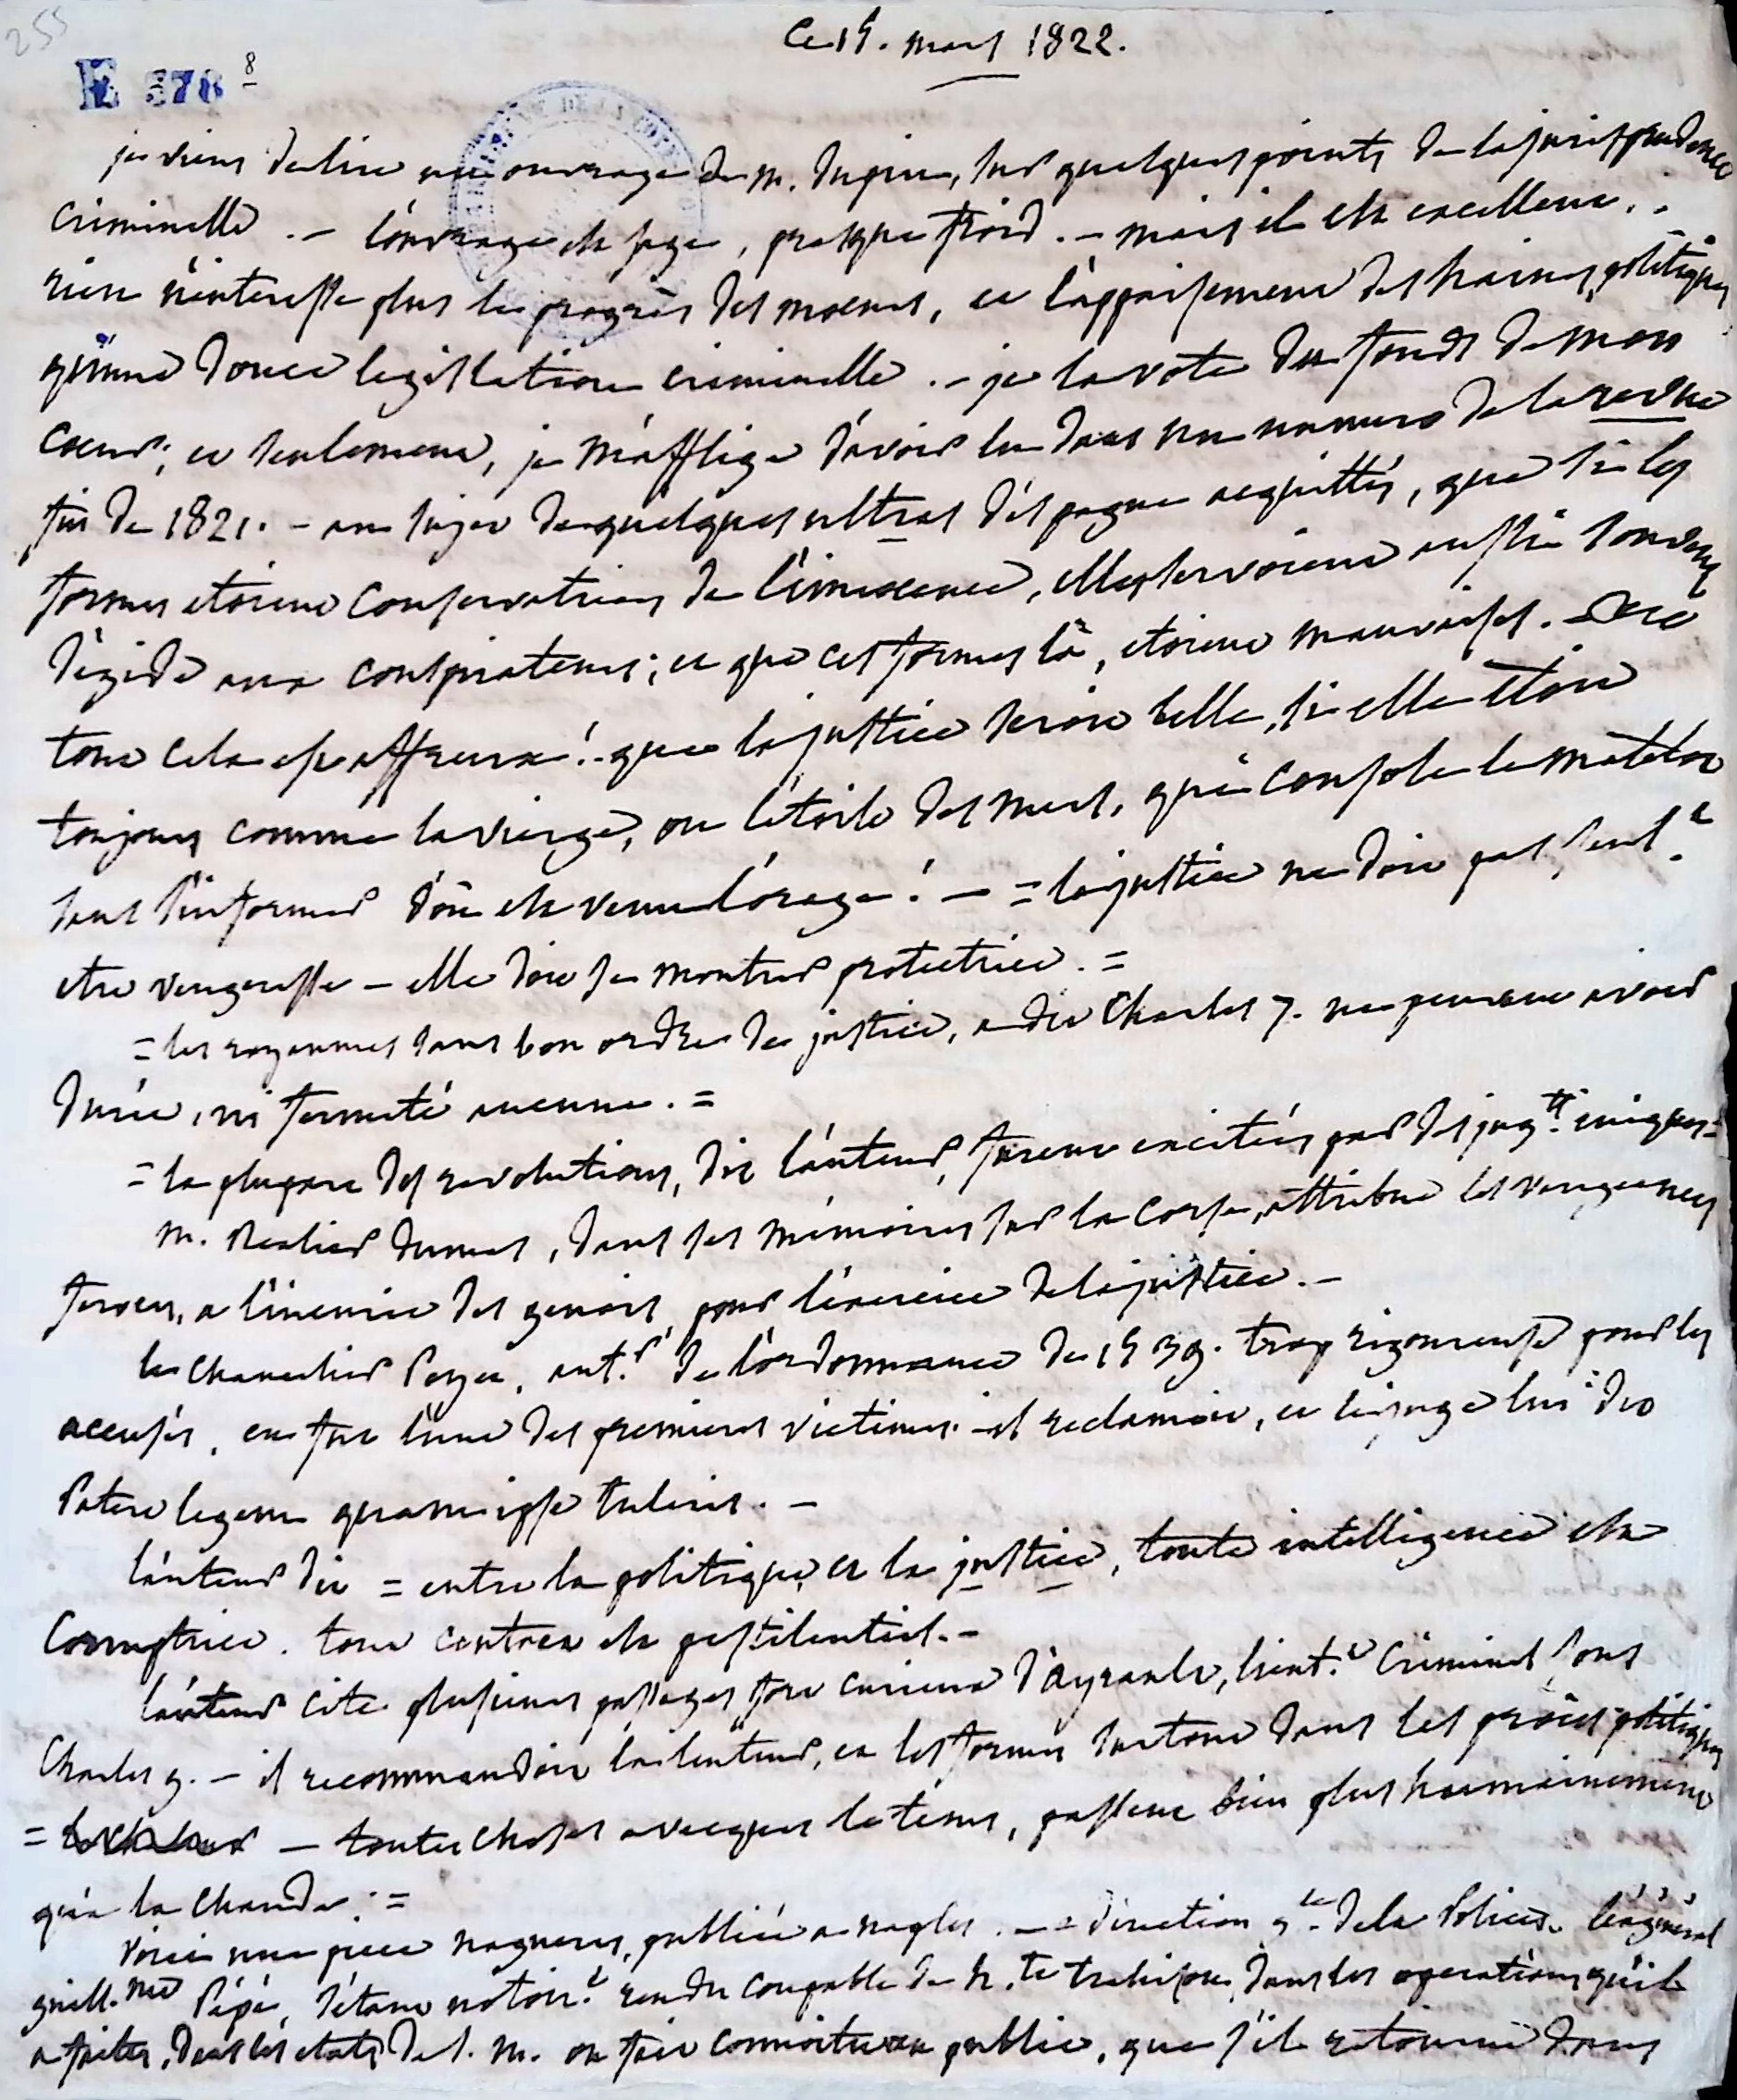 255
Ce 15. mars 1822.
E 378 8
je viens de lire un ouvrage de m. dupin, sur quelques points de la jurisprudence
criminelle. – l'ouvrage est sage, presque froid. – mais il est excellent. .
rien n'interesse plus les progrès des moeurs, et l'appaisement des haines politiques
qu'une douce legislation criminelle. – je la vote du fonds de mon
coeur; et seulement, je m'afflige d'avoir lu dans un numero de la revue
fin de 1821. – au sujet de quelques ultras d'espagne acquittés, que si les
formes etoient conservatrices de l'innocence, elles servoient aussi souvent
d'égide aux conspirateurs; et que ces formes là, etoient mauvaises. –
tout cela est affreux! – que la justice seroit belle, si elle etoit
toujours comme la vierge, ou l'étoile des mers, qui console le matelot
sans s'informer d'où est venu l'orage! – = la justice ne doit pas seul.t
etre vengeresse – elle doit se montrer protectrice. =
= les royaumes sans bon ordre de justice, a dit Charles 7. ne peuvent avoir
durée, ni fermeté aucune. =
= la plupart des revolutions, dit l'auteur, furent excitées par des jug.ts iniques =
m. Realier dumas, dans ses mémoires sur la Corse, attribue les vengeances
feroces, a l'incurie des genois, pour l'exercice de la justice. –
le chancelier Poyet, aut.r de l'ordonnance de 1539. trop rigoureuse pour les
accusés, en fut l'une des premieres victimes. – il reclamoit, et le juge lui dit
Patere legem quam ipse tuleris. –
l'auteur dit = entre la politique et la justice, toute intelligence est
corruptrice. tout contact est pestilentiel. –
l'auteur cite plusieurs passages fort curieux d'ayrault, lieut.t criminel sous
Charles 9. – il recommandoit la lenteur, et les formes surtout dans les procès politiques
= – toutes choses avecques le tems, passent bien plus humainement
qu'a la chaude. =
voici une piece nagueres, publiée a naples. – = direction g.le de la Police. le général
guill.me Pépé, s'étant notoir.t rendu coupable de h.te trahison, dans les operations qu'il
a faites, dans les etats de s. m. on fait connoitre au public, que s'il retourne dans